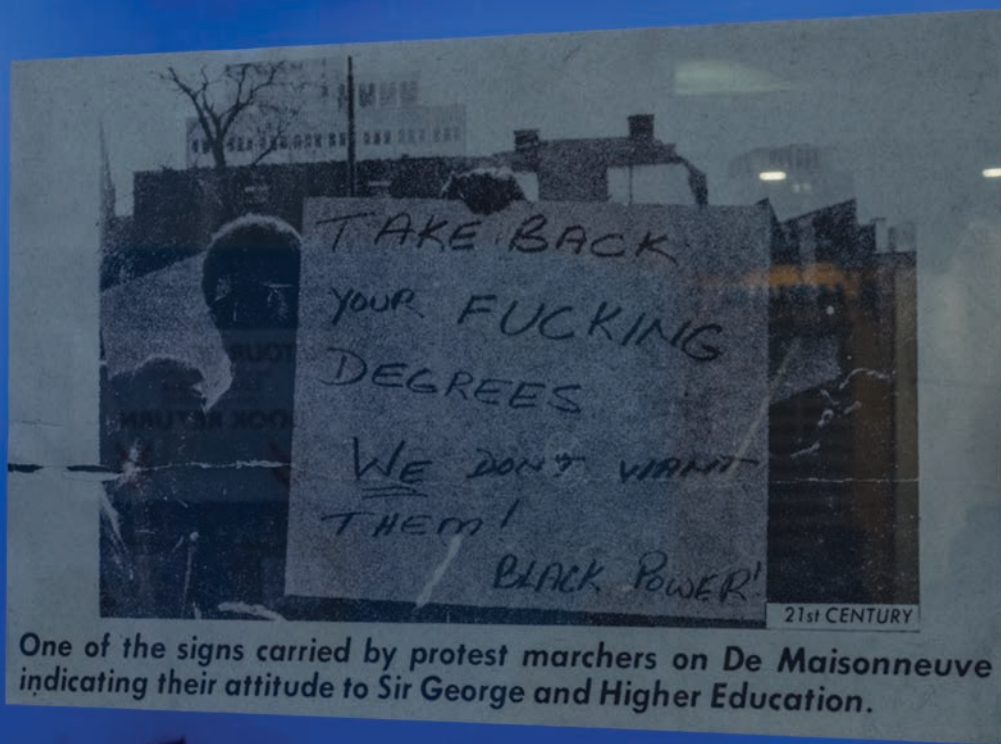 TAKE BACK
YOUR FUCKING
DEGREES
WE DON'T WANT
THEM!
BLACK POWER!
21st CENTURY
One of the signs carried by protest marchers on De Maisonneuve
indicating their attitude to Sir George and Higher Education.